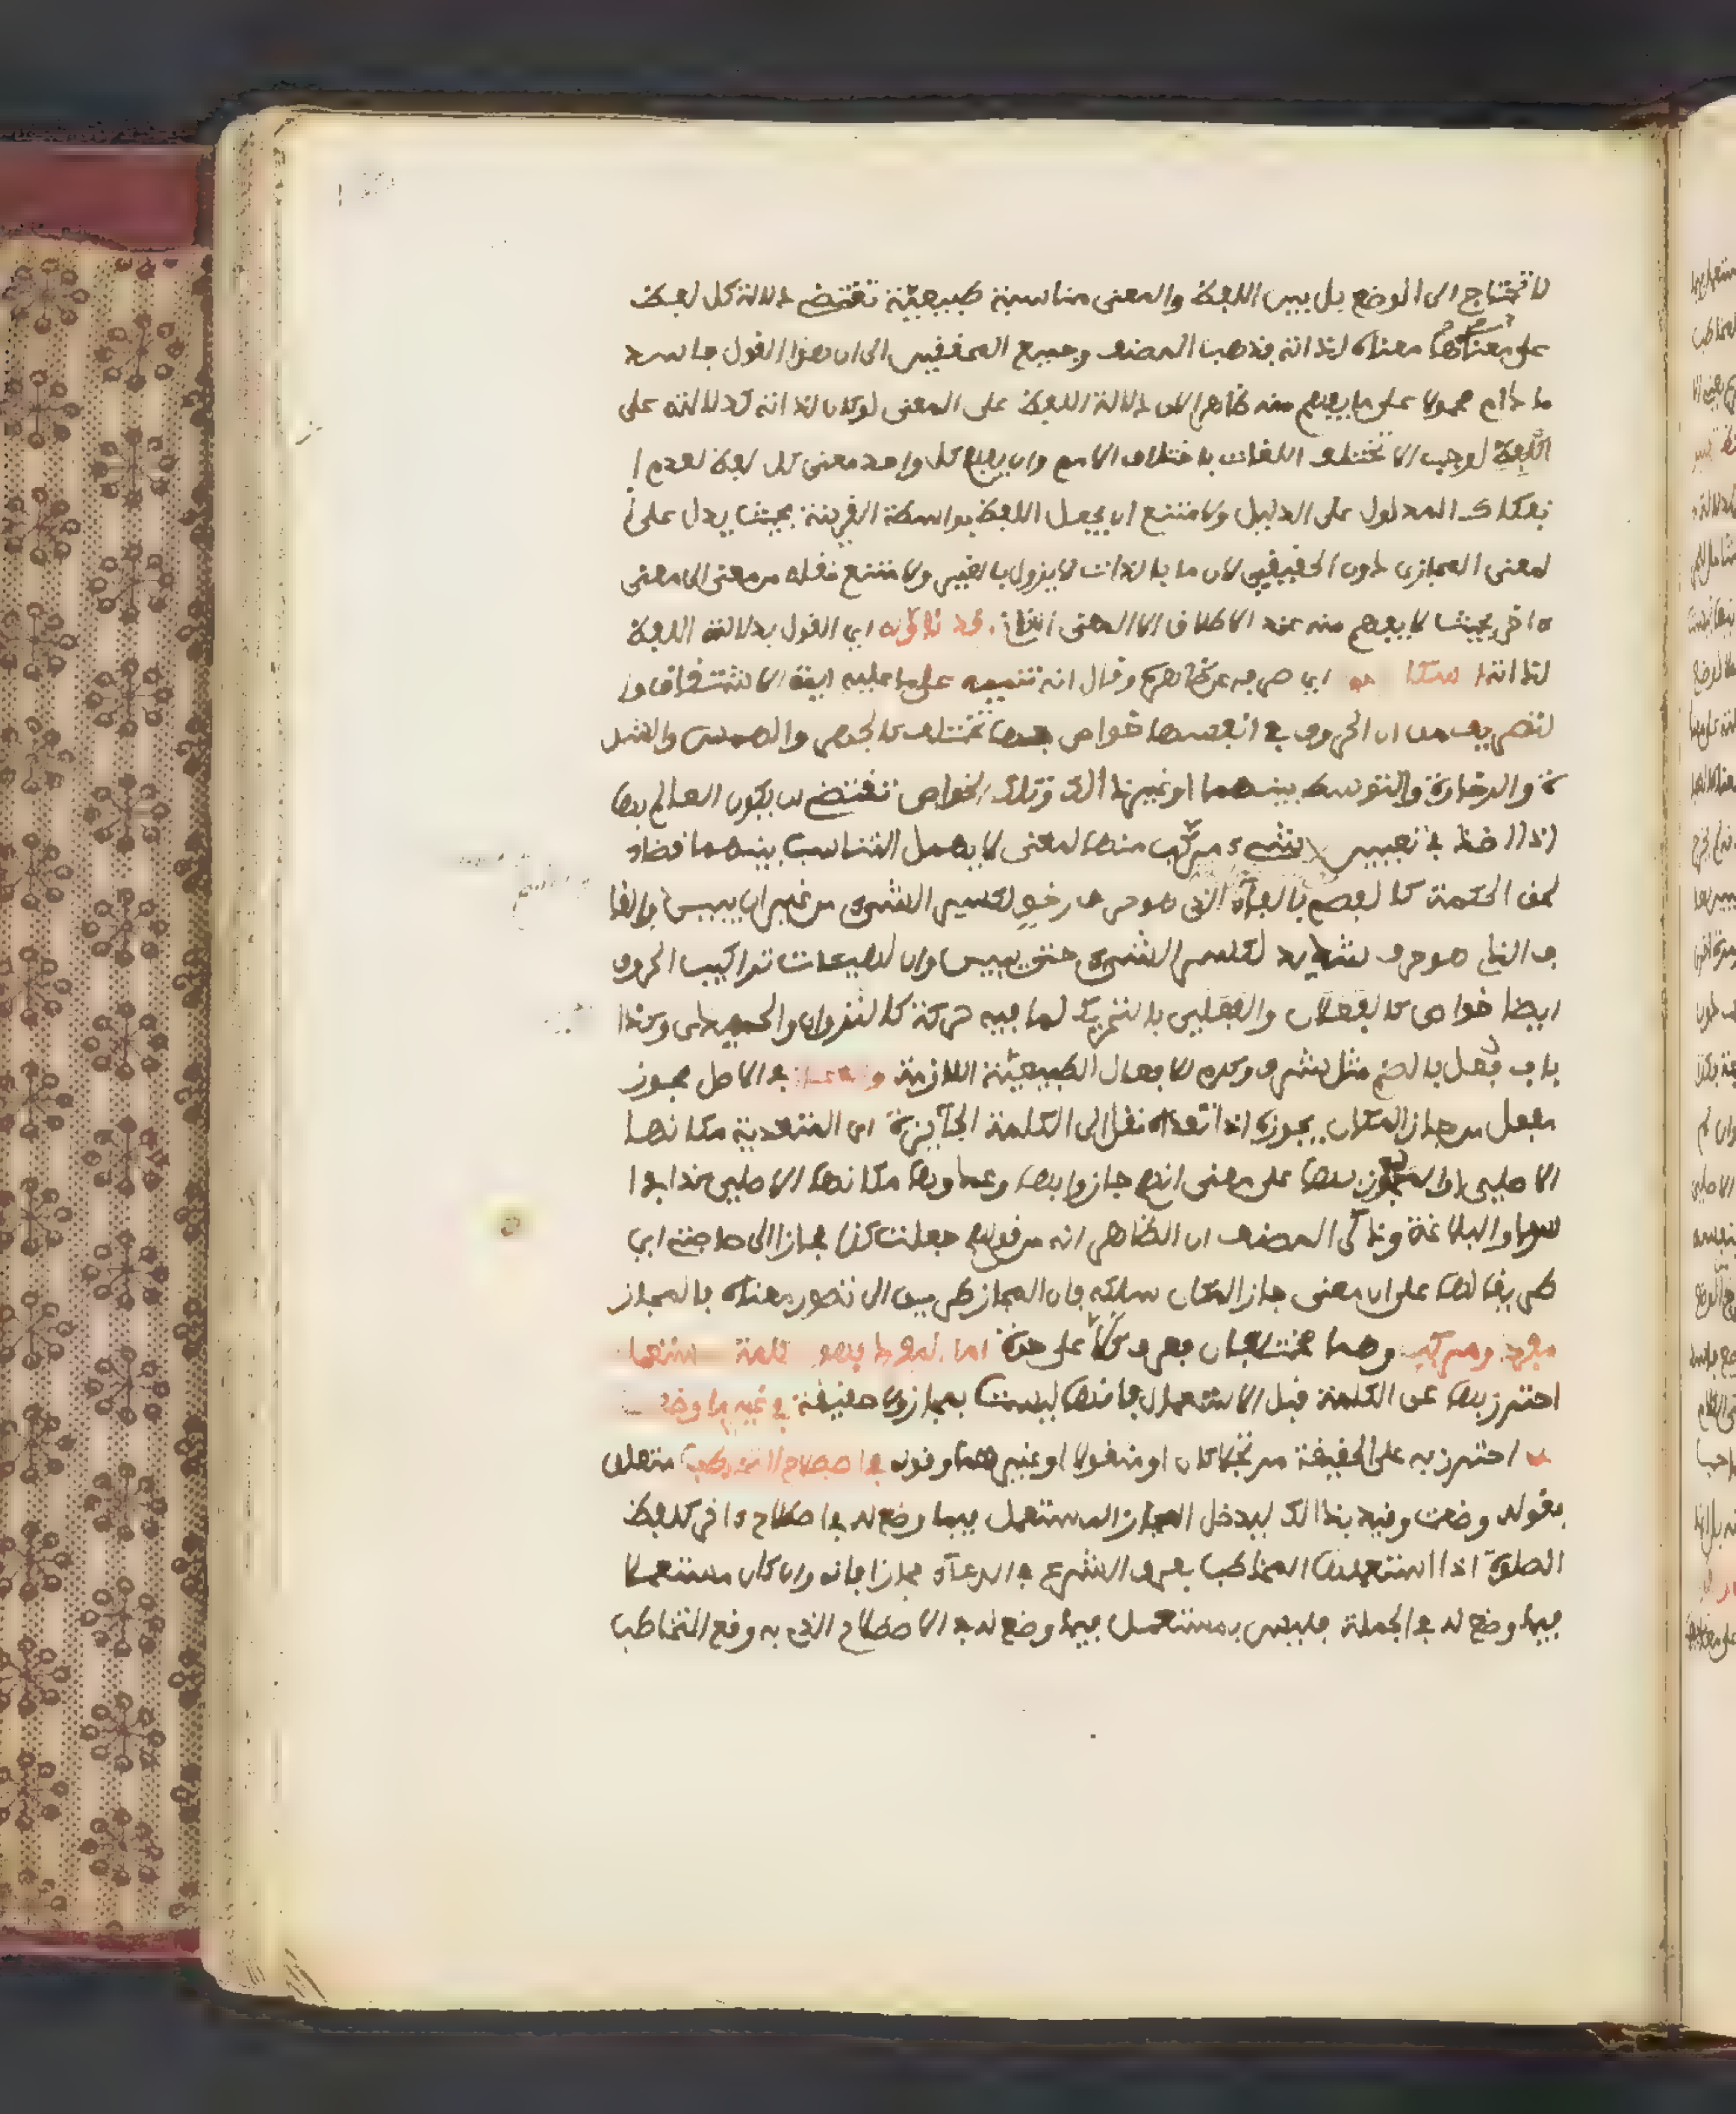 لا تحتاج الى الوضع بل بين اللفظ والمعنى مناسبة طبيعيّة تقتضے دلالة كل لفظ
على معناه لذاته فذهب المصنف وجميع المحققين الى ان هذا القول فاسد
ما دام محمولا على ما يفهم منه ظاهرا لان دلالة اللفظ على المعنى لو كان لذاته كدلالته على
اللّافظ لوجب الا تختلف اللغات باختلاف الامم وان يفهم كل واحد معنى كل لفظ لعدم ا
نفكاك المدلول على الدليل ولامتنع ان يجعل اللفظ بواسطة القرينة بحيث يدل على ا
لمعنى المجازى دون الحقيقي لان ما بالذات لا يزول بالغير ولامتنع نقله من معنى الى معنى
ءاخر بحيث لا يفهم منه عند الاطلاق الا المعنى الثانے وقد تاوّله اي القول بدلالة اللفظ
لذاته السكا اي صرفه عن ظاهره وقال انه تنبيه على ما عليه ايمّة الاشتقاق وا
لتصريف من ان الحروف في انفسها خواص بها تختلف كالجهر والهمس والشد
ة والرخاوة والتوسط بينهما وغير ذالك وتلك الخواص تقتضے ان يكون العالم بها
اذا اخذ في تعيين شےء مركّب منها لمعنى لا يهمل التناسب بينهما قضاء
لحق الحكمة كالفصم بالفآء الذى هو حرف رخو لكسر الشىء من غير ان يبين والقا
ف الذے هو حرف شديد لكسر الشىء حتى يبين وان لهيئات تراكيب الحروف
ايضا خواص كالفعلان والفعلى بالتحريك لما فيه حركة كالنزوان والحيدى وكذا
باب فعُل بالضم مثل شرف وكرم للافعال الطبيعيّة اللازمة والمجاز في الاصل مجوز
مفعل من جاز المكان يجوزه اذا تعداه نقل الى الكلمة الجآيزة اى المتعدية مكانها
الاصلى او المجوز بها على معنى انهم جازوا بها وعدوها مكانها الاصلى كذا في ا
سرار البلاغة وذكر المصنف ان الظاهر انه من قولهم جعلت كذا مجازا الى حاجتى اي
طريقا لها على ان معنى جاز المكان سلكه فان المجاز طريق الى تصور معناه فالمجاز
مفرد ومركب وهما مختلفان فعرف كلّا على حدة اما المفرد فهو الكلمة المستعملة
احترز بها عن الكلمة قبل الاستعمال فانها ليست بمجاز ولا حقيقة في غير ما وضعت
له احترز به على الحقيقة مرتجلا كان او منقولا او غيرهما وقوله في اصطلاح التخاطب متعلق
بقوله وضعت وقيد بذالك ليدخل المجاز المستعمل فيما وضع له في اصطلاح ءاخر كلفظ
الصلوة اذا استعملها المخاطب بعرف الشرع في الدعآء مجازا فانه وان كان مستعملا
فيما وضع له في الجملة فليس بمستعمل فيما وضع له في الاصطلاح الذے به وقع التخاطب